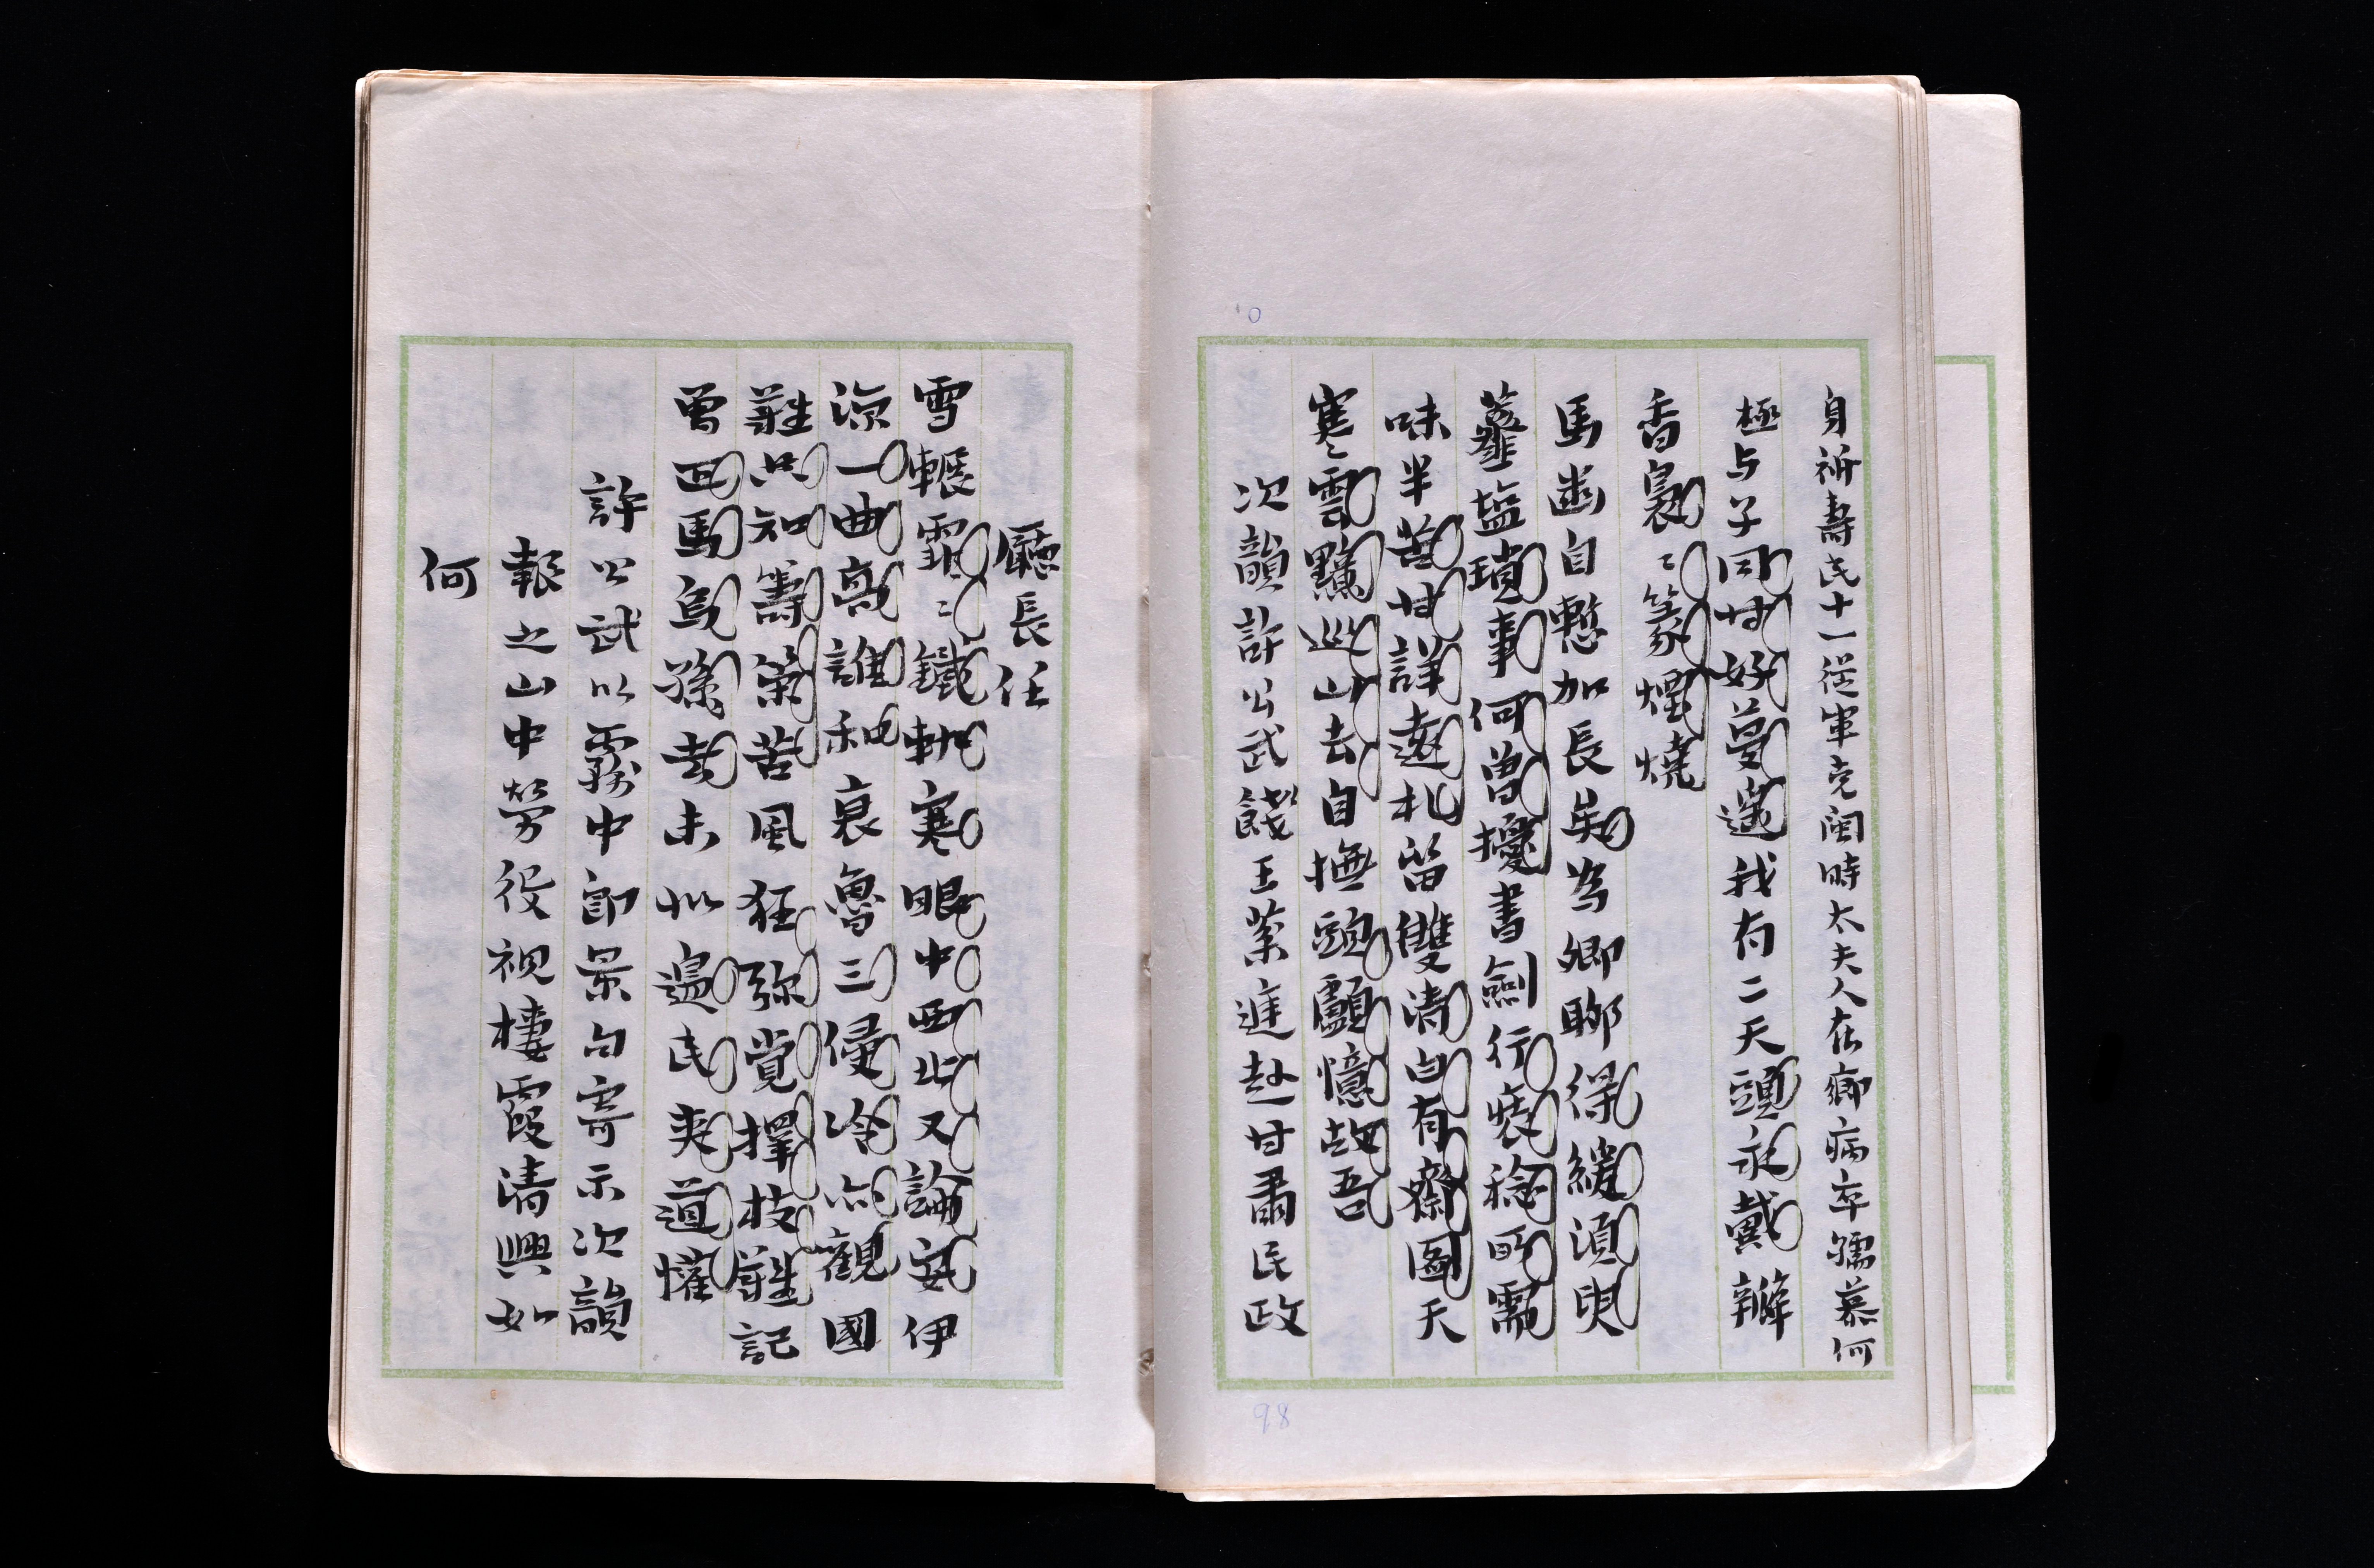 身祈壽民十一從軍克閩時太夫人在鄉病卒孺慕何
極与子同甘好蔓遥我有二天頭永戴辦
香裊〻篆煙燒
馬齒自慙加長矣爲卿聊得緩須臾
虀塩瑣事何曽擾書劍行裝稔所需
味半苦甘詳遠札留雙淸白有齋圖天
寒〻雲黯巡山去自撫頭顱憶故吾
次韻許公武餞王葉進赴甘肅民政
廳長任
雪輾霏〻鐵軌寒眼中西北又論安伊
涼一曲高誰和哀魯三侵冷亦觀國
難只知籌策苦風狂弥覺擇枝難記
曽匹馬烏孫去未似邊民爽道懽
許公武以霧中即景句寄示次韻
報之山中勞役視棲霞清興如
何
98